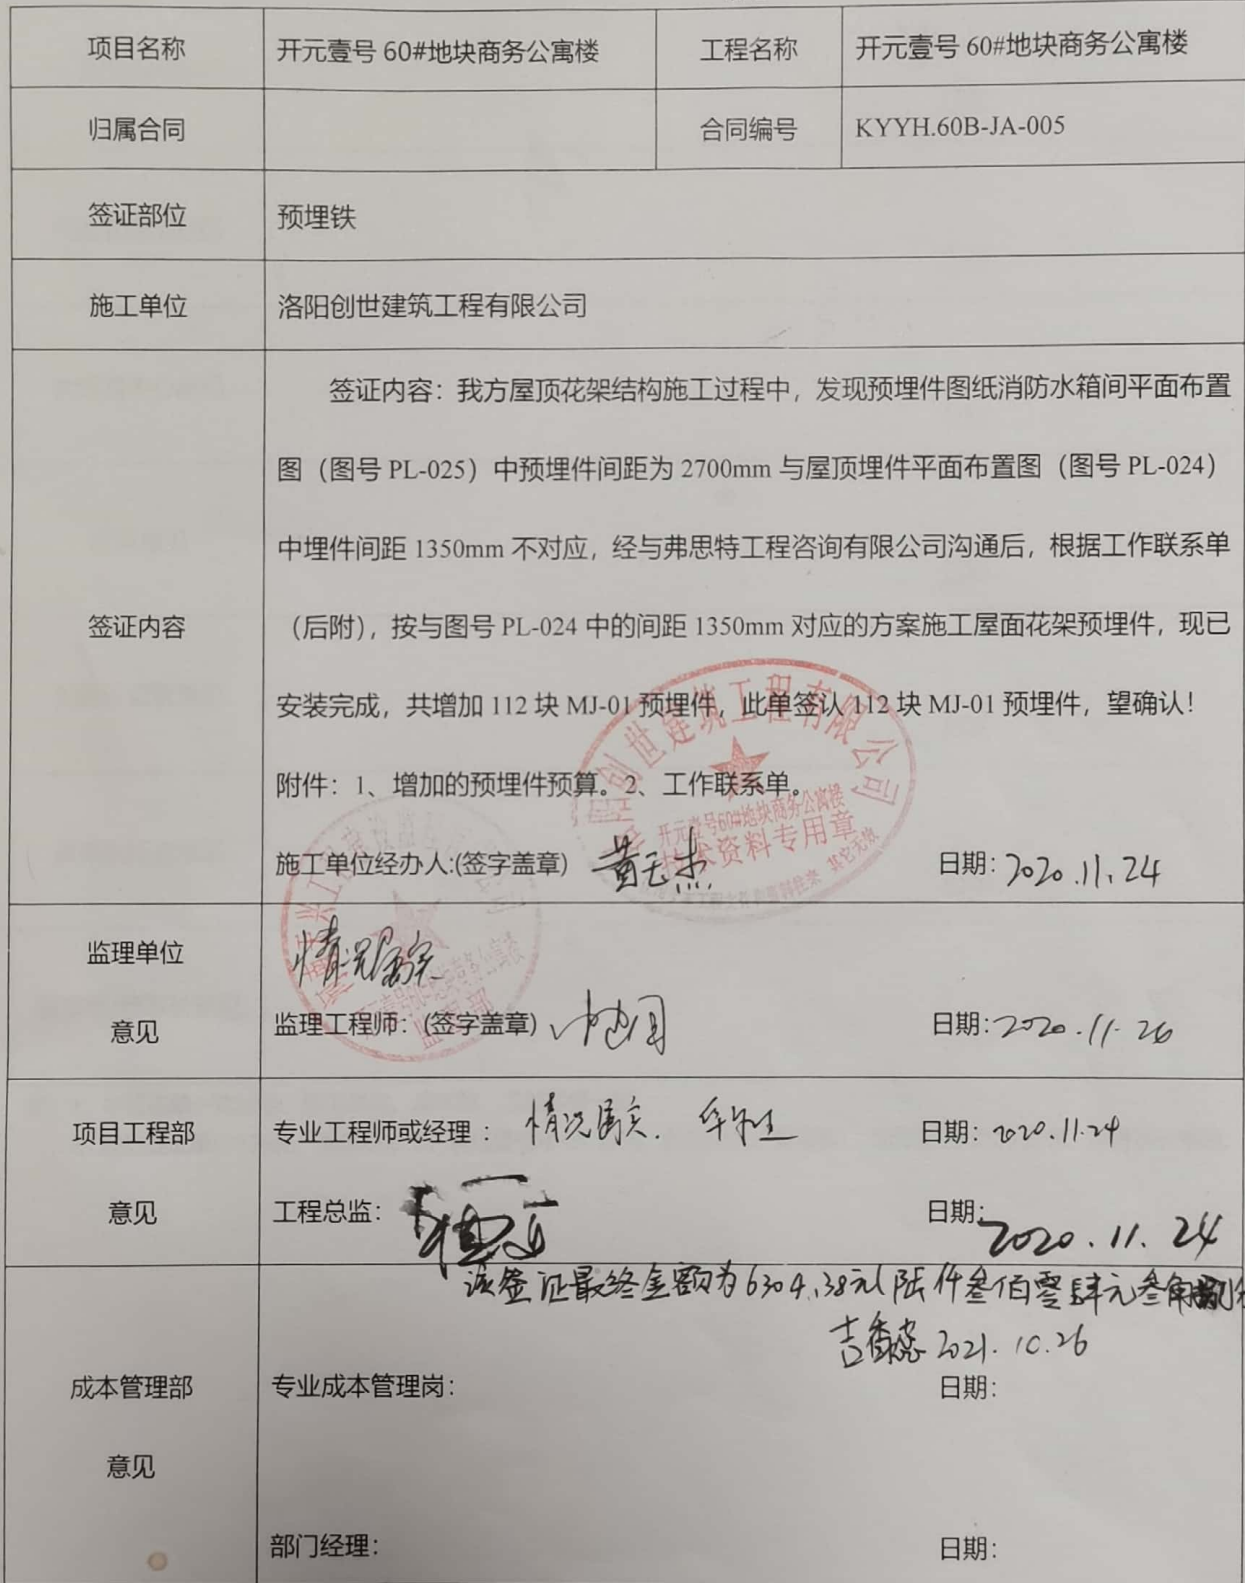 项目名称 开元壹号 60#地块商务公寓楼 工程名称 开元壹号 60#地块商务公寓楼
归属合同 合同编号 KYYH.60B-JA-005
签证部位 预埋铁
施工单位 洛阳创世建筑工程有限公司
签证内容：我方屋顶花架结构施工过程中，发现预埋件图纸消防水箱间平面布置
图（图号 PL-025）中预埋件间距为 2700mm 与屋顶埋件平面布置图（图号 PL-024）
中埋件间距 1350mm 不对应，经与弗思特工程咨询有限公司沟通后，根据工作联系单
签证内容 （后附），按与图号 PL-024 中的间距 1350mm 对应的方案施工屋面花架预埋件，现已
安装完成，共增加 112 块 MJ-01 预埋件，此单签认 112 块 MJ-01 预埋件，望确认！
附件：1、增加的预埋件预算。2、工作联系单。
创世建筑工程有限公司
开元壹号60#地块商务公寓楼
技术资料专用章
施工单位经办人:(签字盖章) 日期：2020.11.24
监理单位 情况属实
意见 监理工程师：(签字盖章) 日期：2020.11.26
项目工程部 专业工程师或经理： 情况属实. 日期：2020.11.24
意见 工程总监： 日期：2020.11.24
该签证最终金额为6304.38元(陆仟叁佰零肆元叁角捌分
2021.10.26
成本管理部 专业成本管理岗： 日期：
意见
部门经理： 日期：